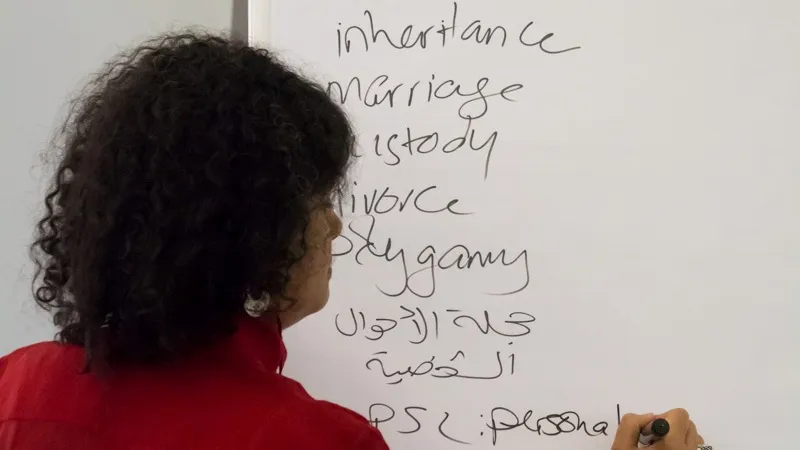 inheritance
marriage
ustody
ivorce
olygamy
مجلة الأحوال
الشخصية
PSC : personal